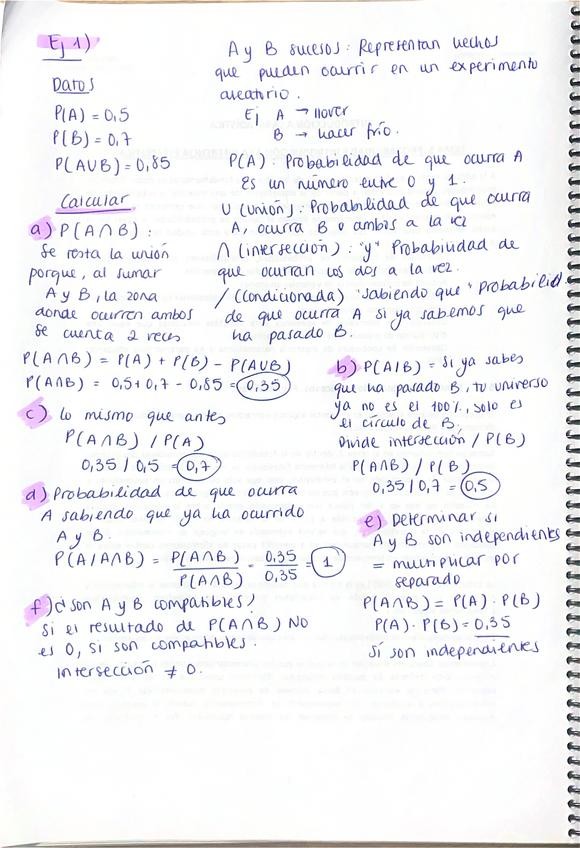 Ej 1)
Datos
P(A) = 0,5
P(B) = 0,7
P(A∪B) = 0,85
Calcular
A y B sucesos: Representan hechos
que pueden ocurrir en un experimento
aleatorio.
Ej A → llover
B → hacer frío.
P(A): Probabilidad de que ocurra A
Es un número entre 0 y 1.
U (unión): Probabilidad de que ocurra
A, ocurra B o ambos a la vez
∩ (intersección): "y" Probabilidad de
que ocurran los dos a la vez.
/ (condicionada) "sabiendo que" Probabilid.
de que ocurra A si ya sabemos que
ha pasado B.
a) P(A∩B):
Se resta la unión
porque, al sumar
A y B, la zona
donde ocurren ambos
se cuenta 2 veces
P(A∩B) = P(A) + P(B) - P(A∪B)
P(A∩B) = 0,5 + 0,7 - 0,85 = 0,35
b) P(A|B) = Si ya sabes
que ha pasado B, tu universo
ya no es el 100%, solo es
el círculo de B.
Divide intersección / P(B)
P(A∩B) / P(B)
0,35 / 0,7 = 0,5
c) lo mismo que antes
P(A∩B) / P(A)
0,35 / 0,5 = 0,7
d) Probabilidad de que ocurra
A sabiendo que ya ha ocurrido
A y B.
P(A/A∩B) = P(A∩B) / P(A∩B) = 0,35 / 0,35 = 1
e) Determinar si
A y B son independientes
= multiplicar por
separado
P(A∩B) = P(A) · P(B)
P(A) · P(B) = 0,35
Sí son independientes
f) ¿Son A y B compatibles?
Si el resultado de P(A∩B) NO
es 0, sí son compatibles.
Intersección ≠ 0.